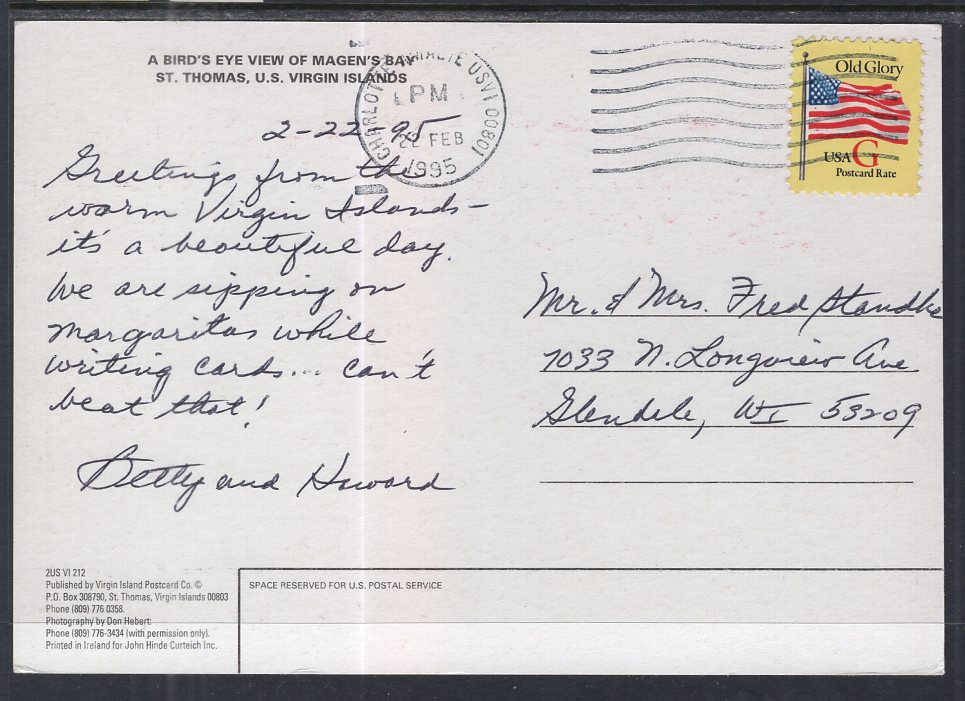 A BIRD'S EYE VIEW OF MAGEN'S BAY
ST. THOMAS, U.S. VIRGIN ISLANDS
CHARLOTTE AMALIE USVI 00801
PM
22 FEB
1995
Old Glory
USA G
Postcard Rate
2-22-95
Greetings from the
warm Virgin Islands—
it's a beautiful day.
We are sipping on
margaritas while
writing cards... can't
beat that!
Betty and Howard
Mr. & Mrs. Fred Standke
7033 N. Longview Ave
Glendale, WI 53209
2US VI 212
Published by Virgin Island Postcard Co. ©
P.O. Box 308790, St. Thomas, Virgin Islands 00803
Phone (809) 776 0358.
Photography by Don Hebert:
Phone (809) 776-3434 (with permission only).
Printed in Ireland for John Hinde Curteich Inc.
SPACE RESERVED FOR U.S. POSTAL SERVICE